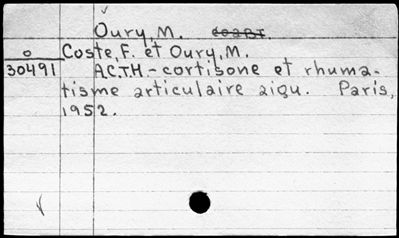 Oury, M.
Coste, F. et Oury, M.
o
30491
ACTH - cortisone et rhuma-
tisme articulaire aigu. Paris,
1952.